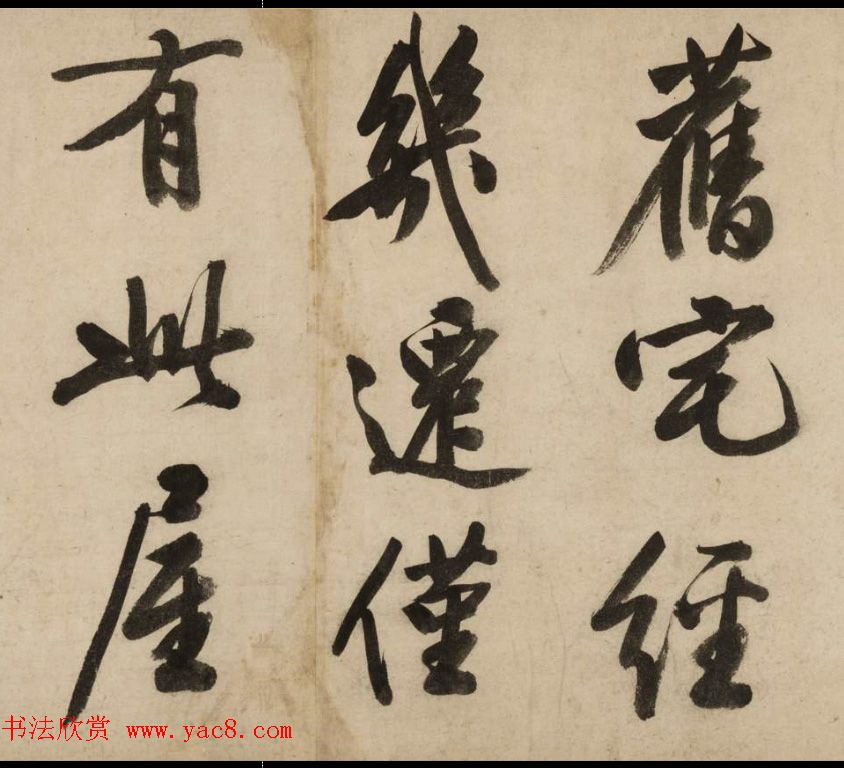 舊宅經
幾遷僅
有此屋
书法欣赏 www.yac8.com